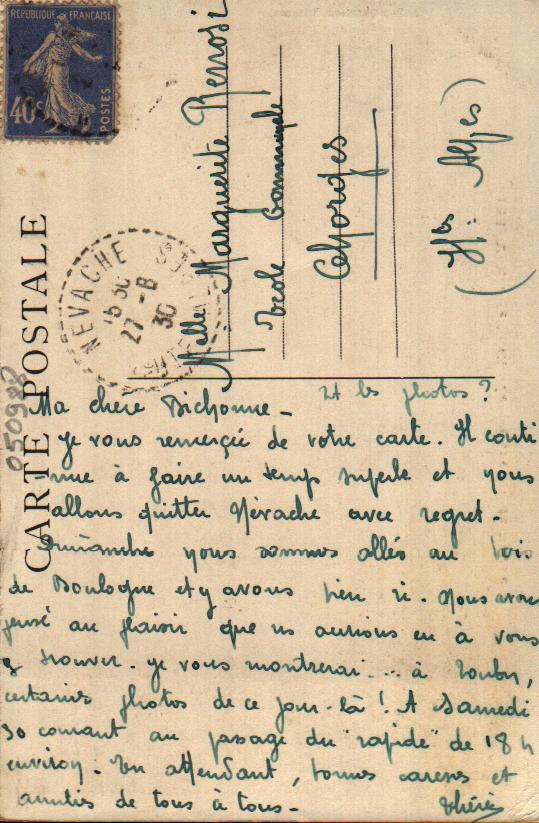 RÉPUBLIQUE FRANÇAISE
40c
POSTES
CARTE POSTALE
050988
NEVACHE
15 30
27 - 8
30
Melle Marguerite
Ecole Communale
Chorges
(Htes Alpes)
Et les photos ?
Ma chère Bichonne -
Je vous remercie de votre carte. Il conti
nue à faire un temps superbe et nous
allons quitter Névache avec regret.
Dimanche nous sommes allés au bois
de Boulogne et y avons bien ri. Nous avons
pensé au plaisir que ns aurions eu à vous
y trouver. Je vous montrerai ... à
certaines photos de ce jour-là ! A Samedi
30 courant au passage du "rapide" de 18 h
environ. En attendant, bonnes caresses et
amitiés de tous à tous -